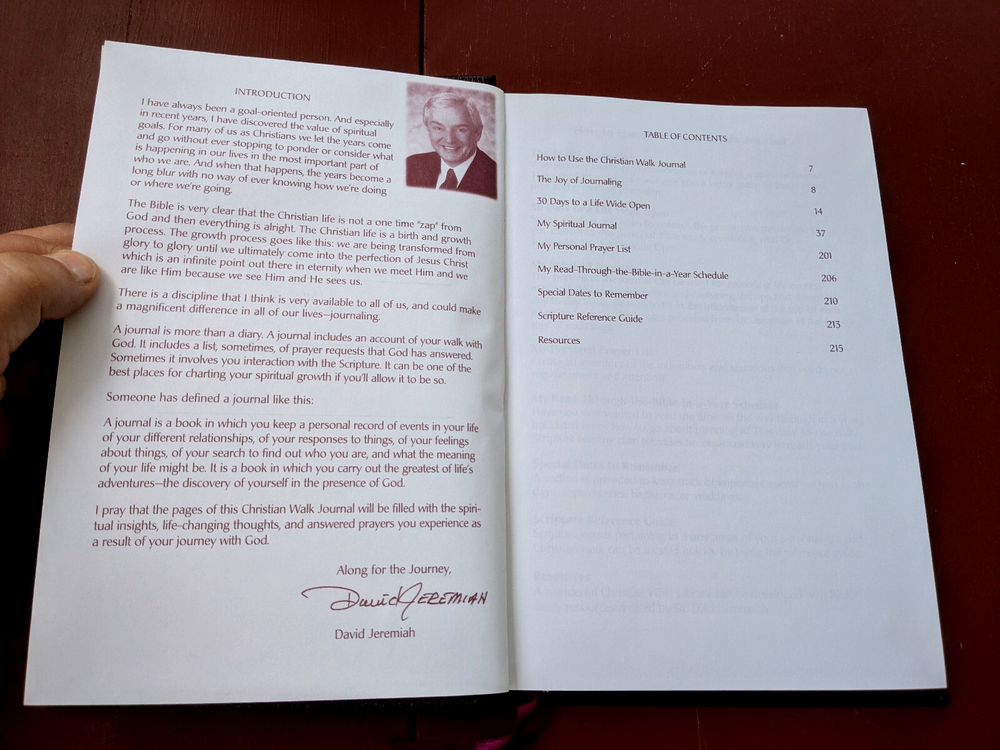 INTRODUCTION
I have always been a goal-oriented person. And especially
in recent years, I have discovered the value of spiritual
goals. For many of us as Christians we let the years come
and go without ever stopping to ponder or consider what
is happening in our lives in the most important part of
who we are. And when that happens, the years become a
long blur with no way of ever knowing how we're doing
or where we're going.
The Bible is very clear that the Christian life is not a one time "zap" from
God and then everything is alright. The Christian life is a birth and growth
process. The growth process goes like this: we are being transformed from
glory to glory until we ultimately come into the perfection of Jesus Christ
which is an infinite point out there in eternity when we meet Him and we
are like Him because we see Him and He sees us.
There is a discipline that I think is very available to all of us, and could make
a magnificent difference in all of our lives—journaling.
A journal is more than a diary. A journal includes an account of your walk with
God. It includes a list, sometimes, of prayer requests that God has answered.
Sometimes it involves you interaction with the Scripture. It can be one of the
best places for charting your spiritual growth if you'll allow it to be so.
Someone has defined a journal like this:
A journal is a book in which you keep a personal record of events in your life
of your different relationships, of your responses to things, of your feelings
about things, of your search to find out who you are, and what the meaning
of your life might be. It is a book in which you carry out the greatest of life's
adventures—the discovery of yourself in the presence of God.
I pray that the pages of this Christian Walk Journal will be filled with the spiri-
tual insights, life-changing thoughts, and answered prayers you experience as
a result of your journey with God.
Along for the Journey,
David Jeremiah
David Jeremiah
TABLE OF CONTENTS
How to Use the Christian Walk Journal 7
The Joy of Journaling 8
30 Days to a Life Wide Open 14
My Spiritual Journal 37
My Personal Prayer List 201
My Read-Through-the-Bible-in-a-Year Schedule 206
Special Dates to Remember 210
Scripture Reference Guide 213
Resources 215